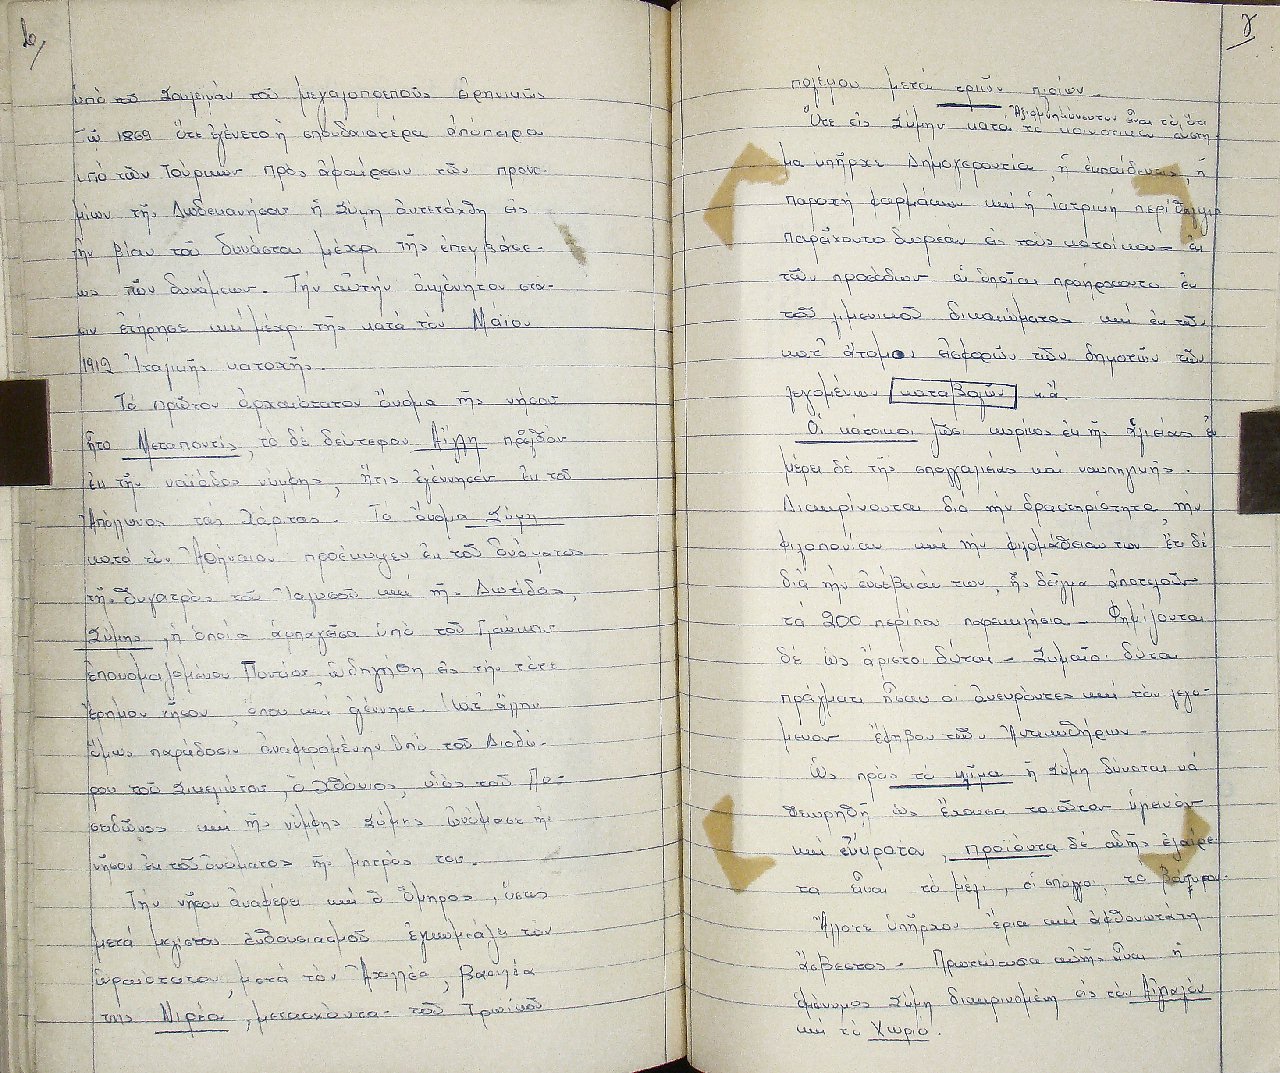 β
ὑπὸ τοῦ Σουλεϊμὰν τοῦ μεγαλοπρεποῦς εἰρηνικῶς
Τῷ 1869 ὅτε ἐγένετο ἡ σπουδαιοτέρα ἀπόπειρα
ὑπὸ τῶν Τούρκων πρὸς ἀφαίρεσιν τῶν προνο-
μίων τῆς Δωδεκανήσου ἡ Σύμη ἀντετάχθη εἰς
τὴν βίαν τοῦ δυνάστου μέχρι τῆς ἐπεμβάσε-
ως τῶν δυνάμεων. Τὴν αὐτὴν ἀκλόνητον στά-
σιν ἐτήρησε καὶ μέχρι τῆς κατὰ τὸν Μάϊον
1912 Ἰταλικῆς κατοχῆς.
Τὸ πρῶτον ἀρχαιότατον ὄνομα τῆς νήσου
ἦτο Μεταποντίς, τὸ δὲ δεύτερον Αἴγλη προῆλθον
ἐκ τῆς ναϊάδος νύμφης, ἥτις ἐγέννησεν ἐκ τοῦ
Ἀπόλλωνος τὰς Χάριτας. Τὸ ὄνομα Σύμη
κατὰ τὸν Ἀθήναιον προέκυψεν ἐκ τοῦ ὀνόματος
τῆς θυγατρὸς τοῦ Ἰαλυσοῦ καὶ τῆς Δωτίδος,
Σύμης, ἡ ὁποία ἁρπαγεῖσα ὑπὸ τοῦ Γλαύκου
ἐπονομαζομένου Ποντίου ὡδηγήθη εἰς τὴν τότε
ἔρημον νῆσον, ὅπου καὶ ἐγέννησε. Κατ' ἄλλην
ὅμως παράδοσιν ἀναφερομένην ὑπὸ τοῦ Διοδώ-
ρου τοῦ Σικελιώτου, ὁ Χθόνιος, υἱὸς τοῦ Πο-
σειδῶνος καὶ τῆς νύμφης Σύμης ὠνόμασε τὴν
νῆσον ἐκ τοῦ ὀνόματος τῆς μητρός του.
Τὴν νῆσον ἀναφέρει καὶ ὁ Ὅμηρος, ὅστις
μετὰ μεγίστου ἐνθουσιασμοῦ ἐγκωμιάζει τὸν
ὡραιότατον, μετὰ τὸν Ἀχιλλέα, βασιλέα
της Νιρέα, μετασχόντα τοῦ Τρωϊκοῦ
γ
πολέμου μετὰ τριῶν πλοίων.
Ὅτε εἰς Σύμην κατὰ τὸ κοινοτικὸν σύστη-
Ἀξιομνημόνευτον εἶναι τὸ ὅτι
μα ὑπῆρχε Δημογεροντία, ἡ ἐκπαίδευσις, ἡ
παροχὴ φαρμάκων καὶ ἡ ἰατρικὴ περίθαλψις
παρείχοντο δωρεὰν εἰς τοὺς κατοίκους ἐκ
τῶν προσόδων αἱ ὁποῖαι προήρχοντο ἐκ
τοῦ λιμενικοῦ δικαιώματος καὶ ἐκ τῶν
κατ' ἄτομον εἰσφορῶν τῶν δημοτῶν τῶν
λεγομένων καταβολῶν κ.ἄ.
Οἱ κάτοικοι ζῶσι κυρίως ἐκ τῆς ἁλιείας ἐν
μέρει δὲ τῆς σπογγαλιείας καὶ ναυπηγικῆς.
Διακρίνονται διὰ τὴν δραστηριότητα, τὴν
φιλοπονίαν καὶ τὴν φιλομάθειαν των ἔτι δὲ
διὰ τὴν εὐσέβειάν των, ἧς δεῖγμα ἀποτελοῦν
τὰ 200 περίπου παρεκκλήσια. Φημίζονται
δὲ ὡς ἄριστοι δύται. Συμαῖοι δύται
πράγματι ἦσαν οἱ ἀνευρόντες καὶ τὸν λεγό-
μενον ἔφηβον τῶν Ἀντικυθήρων.
Ὡς πρὸς τὸ κλῖμα ἡ Σύμη δύναται νὰ
θεωρηθῇ ὡς ἔχουσα τοιοῦτον ὑγιεινὸν
καὶ εὔκρατον, προϊόντα δὲ αὐτῆς ἐξαίρε-
τα εἶναι τὸ μέλι, οἱ σπόγγοι, τὸ βούτυρον.
Ἄλλοτε ὑπῆρχον ἔρια καὶ ἀφθονωτάτη
ἄσβεστος. Πρωτεύουσα αὐτῆς εἶναι ἡ
ὁμώνυμος Σύμη διακρινομένη εἰς τὸν Αἰγιαλὸν
καὶ τὸ Χωριό.